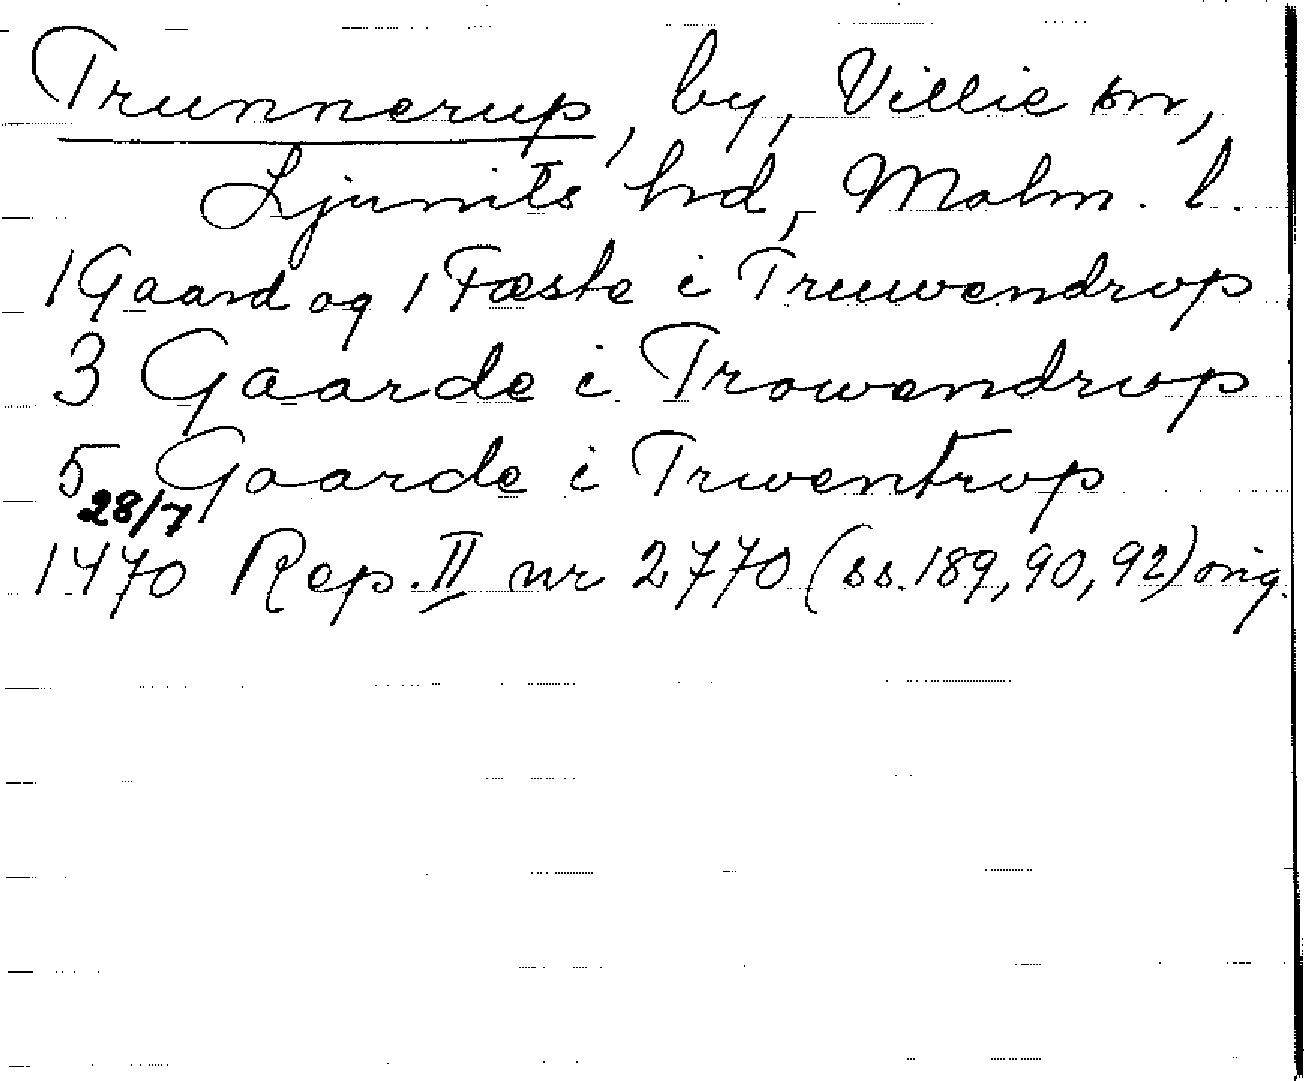 Trunnerup, by, Villie sn,
Ljunits hd, Malm. l.
1 Gaard og 1 Fæste i Truwendrop
3 Gaarde i Trowendrop
5 Gaarde i Trwentrop
28/7
1470 Rep. II nr 2770 (ss. 189, 90, 92) orig.